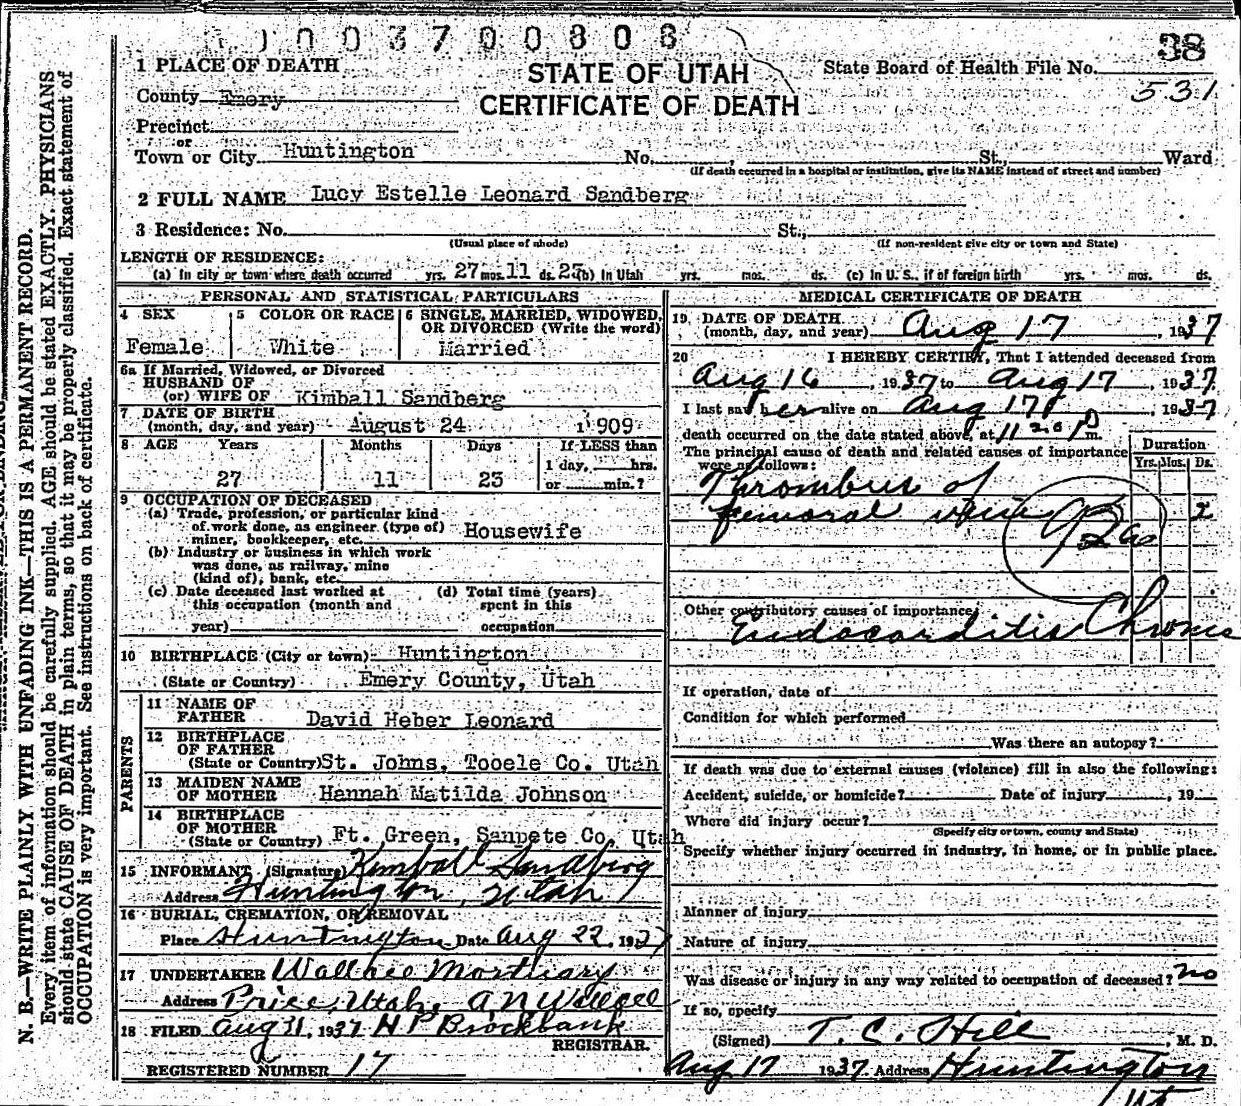 1003700808
38
1 PLACE OF DEATH
STATE OF UTAH
State Board of Health File No.
531
County Emery
CERTIFICATE OF DEATH
Precinct
or
Town or City Huntington No. , St., Ward
(If death occurred in a hospital or institution, give its NAME instead of street and number)
2 FULL NAME Lucy Estelle Leonard Sandberg
3 Residence: No. St.,
(Usual place of abode) (If non-resident give city or town and State)
LENGTH OF RESIDENCE:
(a) In city or town where death occurred yrs. 27 mos. 11 ds. 23 (b) In Utah yrs. mos. ds. (c) In U. S., if of foreign birth yrs. mos. ds.
PERSONAL AND STATISTICAL PARTICULARS
4 SEX 5 COLOR OR RACE 6 SINGLE, MARRIED, WIDOWED,
OR DIVORCED (Write the word)
Female White Married
6a If Married, Widowed, or Divorced
HUSBAND OF
(or) WIFE OF Kimball Sandberg
7 DATE OF BIRTH
(month, day, and year) August 24 1909
8 AGE Years Months Days If LESS than
1 day, hrs.
27 11 23 or min.?
9 OCCUPATION OF DECEASED
(a) Trade, profession, or particular kind
of work done, as engineer (type of)
miner, bookkeeper, etc. Housewife
(b) Industry or business in which work
was done, as railway, mine
(kind of), bank, etc.
(c) Date deceased last worked at (d) Total time (years)
this occupation (month and spent in this
year) occupation
10 BIRTHPLACE (City or town) Huntington
(State or Country) Emery County, Utah
PARENTS
11 NAME OF
FATHER David Heber Leonard
12 BIRTHPLACE
OF FATHER
(State or Country) St. Johns, Tooele Co. Utah
13 MAIDEN NAME
OF MOTHER Hannah Matilda Johnson
14 BIRTHPLACE
OF MOTHER
(State or Country) Ft. Green, Sanpete Co, Utah
15 INFORMANT (Signature) Kimball Sandberg
Address Huntington, Utah
16 BURIAL, CREMATION, OR REMOVAL
Place Huntington Date Aug 22, 1937
17 UNDERTAKER Wallace Mortuary
Address Price, Utah, A N Wallace
18 FILED Aug 31, 1937 H P Brockbank
REGISTRAR.
REGISTERED NUMBER 17
MEDICAL CERTIFICATE OF DEATH
19 DATE OF DEATH
(month, day, and year) Aug 17 1937
20 I HEREBY CERTIFY, That I attended deceased from
Aug 16, 1937 to Aug 17, 1937
I last saw her alive on Aug 17, 1937
death occurred on the date stated above, at 11 20 P m.
The principal cause of death and related causes of importance
were as follows:
Duration
Yrs. Mos. Ds.
Thrombus of
femoral vein 2
Other contributory causes of importance
Endocarditis Chronic
If operation, date of
Condition for which performed
Was there an autopsy?
If death was due to external causes (violence) fill in also the following:
Accident, suicide, or homicide? Date of injury , 19
Where did injury occur?
(Specify city or town, county and State)
Specify whether injury occurred in industry, in home, or in public place.
Manner of injury
Nature of injury
Was disease or injury in any way related to occupation of deceased? no
If so, specify
(Signed) T. C. Hill , M. D.
Aug 17 1937 Address Huntington
Ut
N. B.—WRITE PLAINLY WITH UNFADING INK—THIS IS A PERMANENT RECORD.
Every item of information should be carefully supplied. AGE should be stated EXACTLY. PHYSICIANS
should state CAUSE OF DEATH in plain terms, so that it may be properly classified. Exact statement of
OCCUPATION is very important. See instructions on back of certificate.